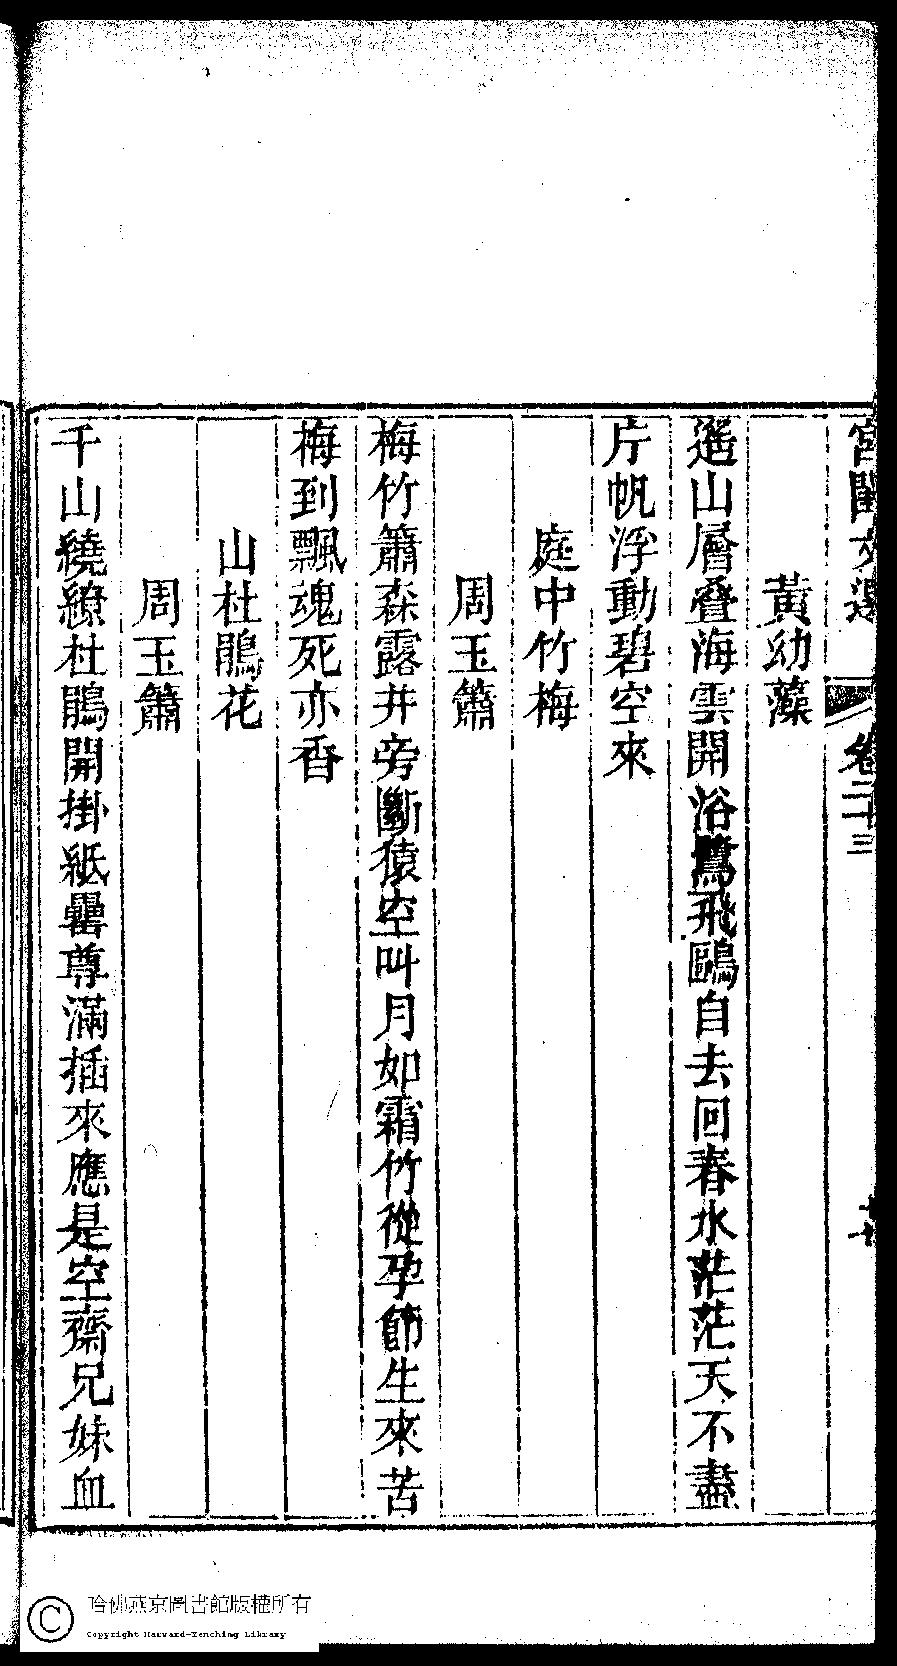 宮閨文選 卷二十三
黃幼藻
遥山層叠海雲開浴鷺飛鷗自去回春水茫茫天不盡
片帆浮動碧空來
庭中竹梅
周玉簫
梅竹簫森露井旁斷猿空叫月如霜竹從孕節生來苦
梅到飄魂死亦香
山杜鵑花
周玉簫
千山繞繚杜鵑開掛紙罍尊滿插來應是空齋兄妹血
哈佛燕京圖書館版權所有
Copyright Harvard-Yenching Library